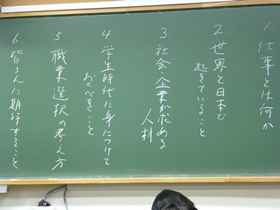 1. 仕事とは何か
2. 世界と日本で
起きていること
3. 社会・企業が求める
人材
4. 学生時代に身につけて
おくべきこと
5. 職業選択の考え方
6. 皆さんに期待すること